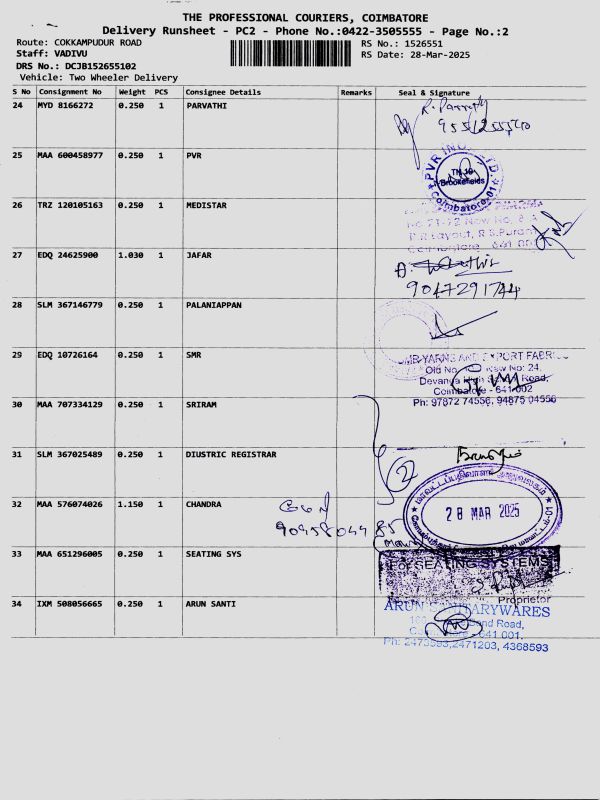 THE PROFESSIONAL COURIERS, COIMBATORE
Delivery Runsheet - PC2 - Phone No.:0422-3505555 - Page No.:2
Route: COKKAMPUDUR ROAD
RS No.: 1526551
Staff: VADIVU
RS Date: 28-Mar-2025
DRS No.: DCJB152655102
Vehicle: Two Wheeler Delivery
S No Consignment No Weight PCS Consignee Details Remarks Seal & Signature
24 MYD 8166272 0.250 1 PARVATHI
25 MAA 600458977 0.250 1 PVR
PVR INO
Brookefields
Coimbatore-01
26 TRZ 120105163 0.250 1 MEDISTAR
Layout, R.S.Puram
Coimbatore 641 002
27 EDQ 24625900 1.030 1 JAFAR
9047291744
28 SLM 367146779 0.250 1 PALANIAPPAN
29 EDQ 10726164 0.250 1 SMR
YARNS AND EXPORT FABRIC
Old No. New No: 24,
Road,
Coimbatore - 641 002
Ph: 97872 74556, 94875 04556
30 MAA 707334129 0.250 1 SRIRAM
31 SLM 367025489 0.250 1 DIUSTRIC REGISTRAR
2
28 MAR 2025
32 MAA 576074026 1.150 1 CHANDRA
33 MAA 651296005 0.250 1 SEATING SYS
For SEATING SYSTEMS
Proprietor
34 IXM 508056665 0.250 1 ARUN SANTI
ARUN SANITARYWARES
Road,
641 001.
Ph: 2475593,2471203, 4368593